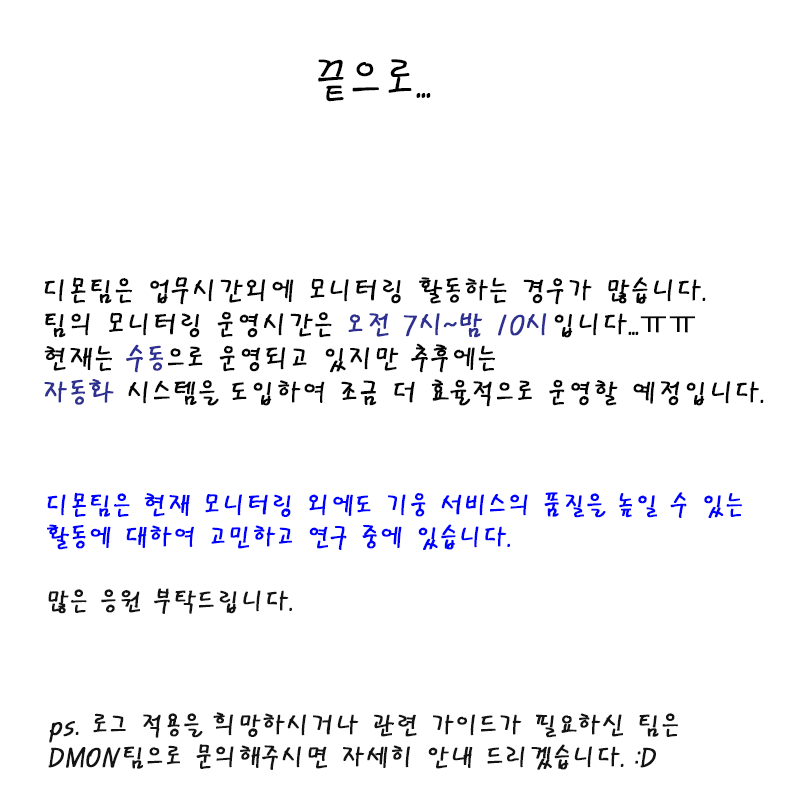 끝으로...
디몬팀은 업무시간외에 모니터링 활동하는 경우가 많습니다.
팀의 모니터링 운영시간은 오전 7시~밤 10시입니다...ㅠㅠ
현재는 수동으로 운영되고 있지만 추후에는
자동화 시스템을 도입하여 조금 더 효율적으로 운영할 예정입니다.
디몬팀은 현재 모니터링 외에도 기웅 서비스의 품질을 높일 수 있는
활동에 대하여 고민하고 연구 중에 있습니다.
많은 응원 부탁드립니다.
ps. 로그 적용을 희망하시거나 관련 가이드가 필요하신 팀은
DMON팀으로 문의해주시면 자세히 안내 드리겠습니다. :D